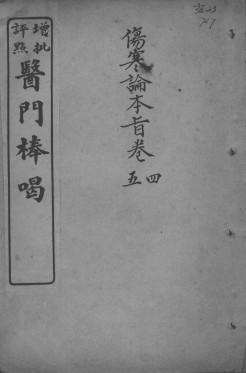 傷寒論本旨卷
四
五
增批
評點
醫門棒喝